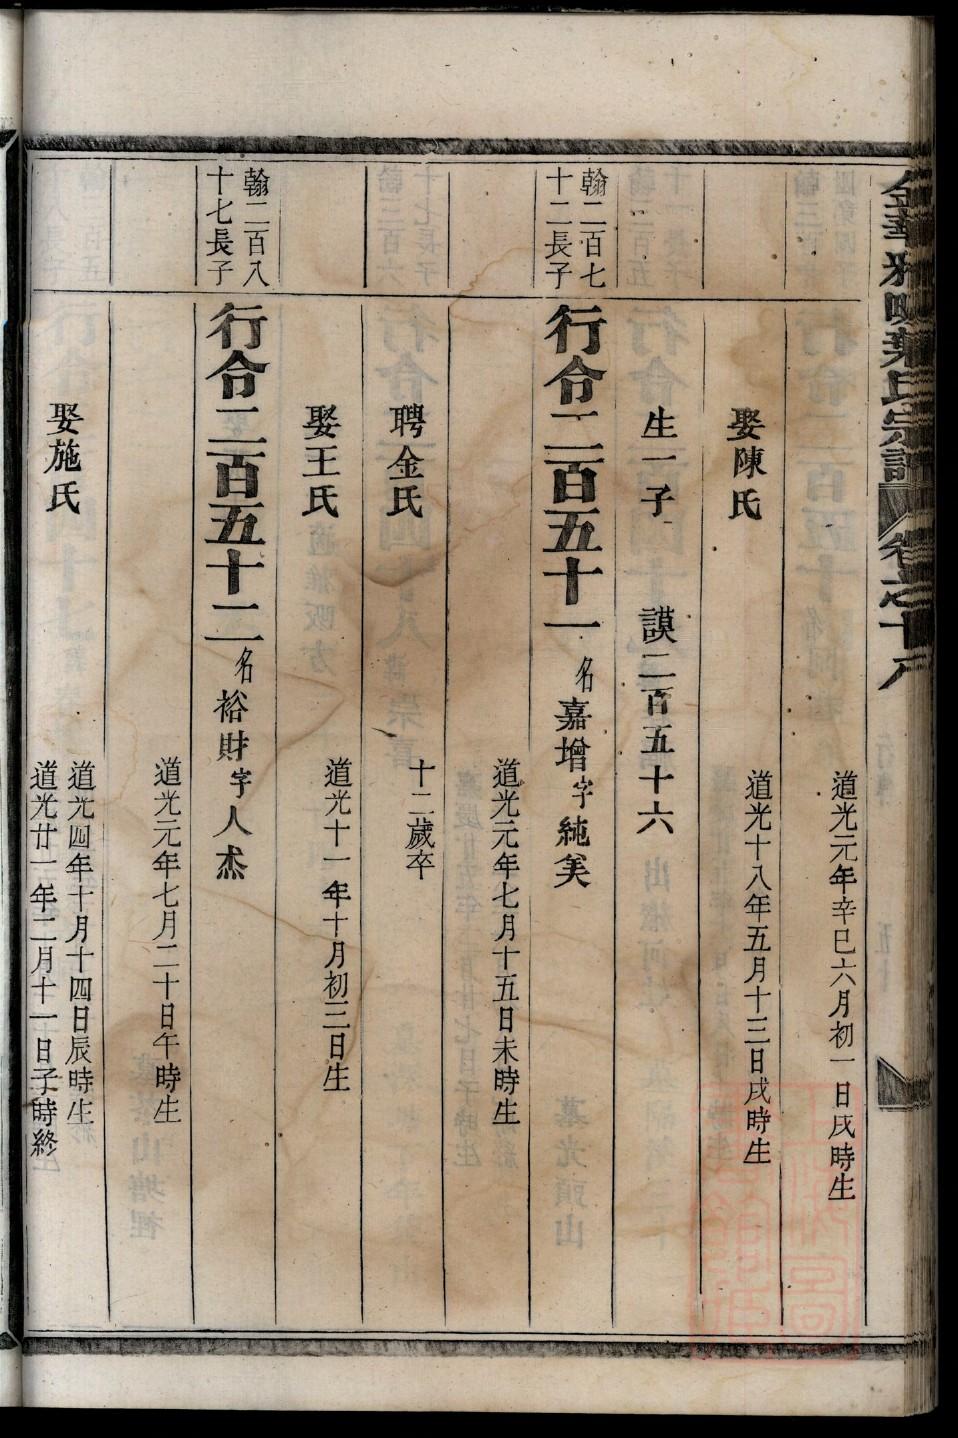 金華雅畈葉氏宗譜 卷之十八
道光元年辛巳六月初一日戌時生
娶陳氏 道光十八年五月十三日戌時生
生一子 謨二百五十六
翰二百七
十二長子
行令二百五十一 名嘉增字純美
道光元年七月十五日未時生
聘金氏 十二歲卒
娶王氏 道光十一年十月初三日生
翰二百八
十七長子
行令二百五十二 名裕財字人杰
道光元年七月二十日午時生
娶施氏 道光四年十月十四日辰時生
道光廿一年二月十一日子時終